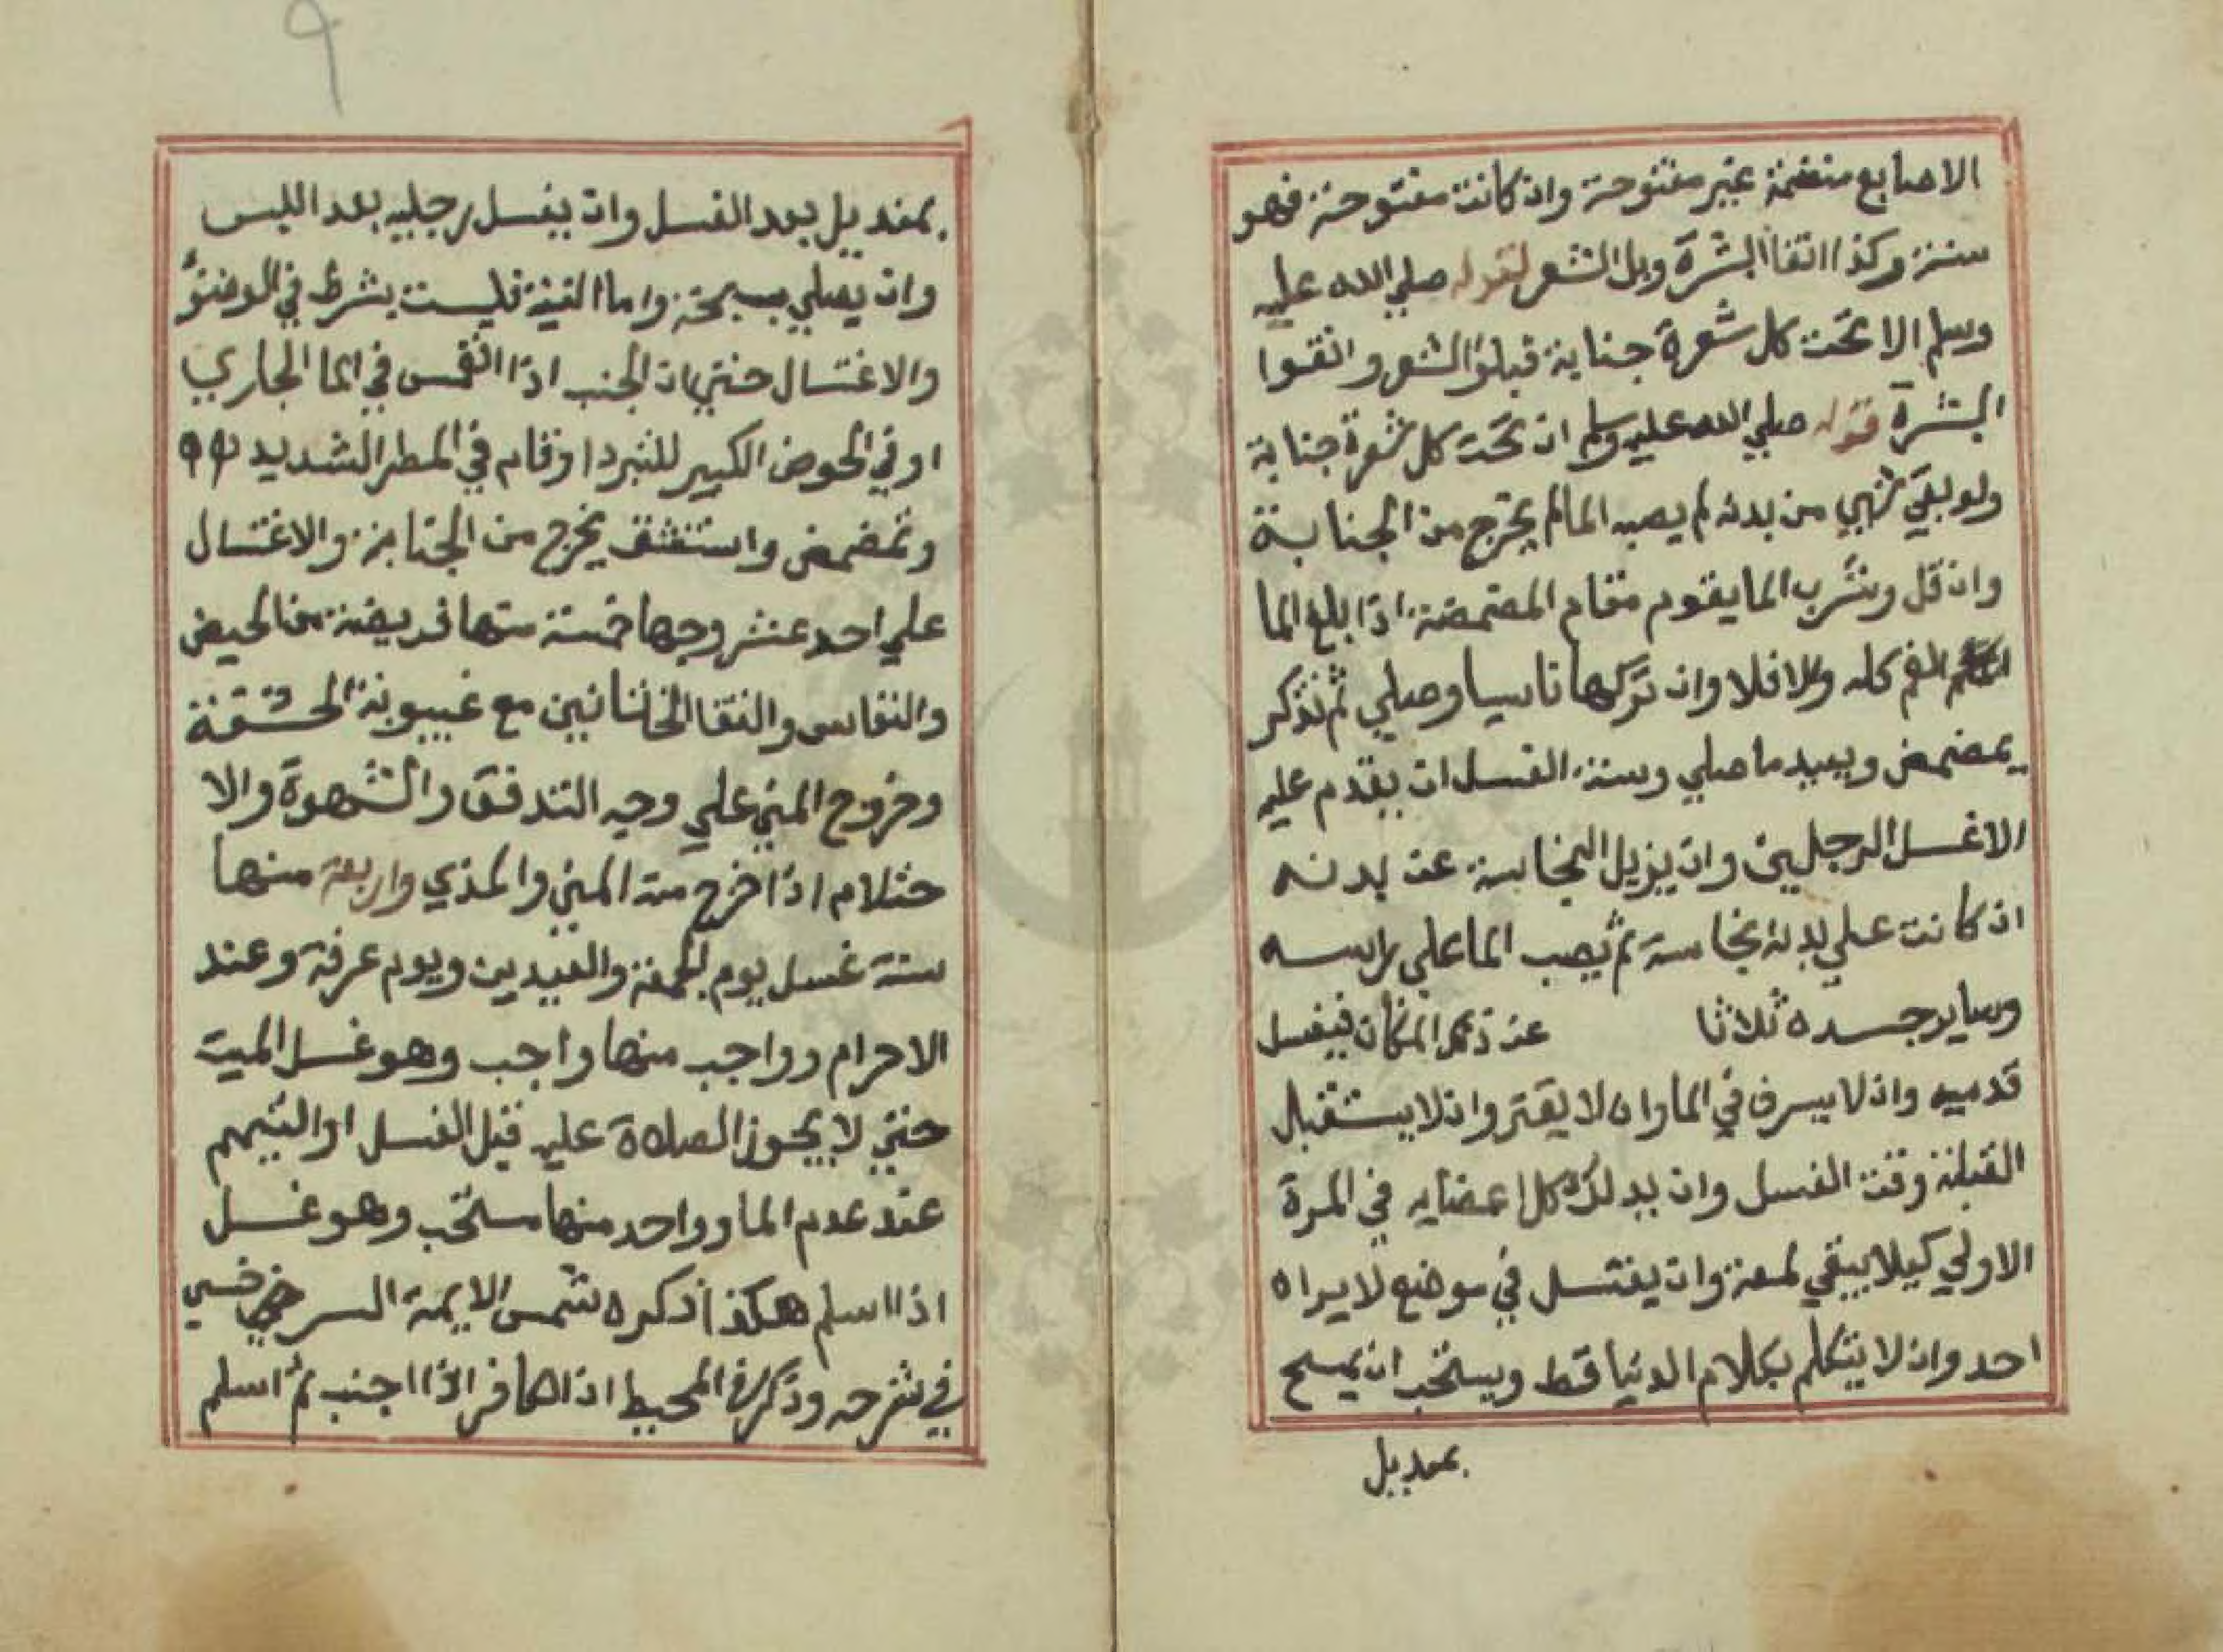 الاصابع منضمة غير مفتوحة وان كانت مفتوحة فهو
سنة وكذا انقا البشرة وبل الشعر لقوله صلي الله عليه
وسلم الا تحت كل شعرة جنابة فبلوا الشعر وانقوا
البشرة قوله صلي الله عليه وسلم ان تحت كل شعرة جنابة
ولو بقي شيي من بدنه لم يصبه الما لم يخرج من الجنابة
وان قل وشرب الما يقوم مقام المضمضة اذا بلغ الما
الفم كله والا فلا وان تركها ناسيا وصلي ثم تذكر
يمضمض ويعيد ما صلي وسنة الغسل ان يقدم عليه
الاغسل الرجلين وان يزيل النجاسة عن بدنه
ان كانت علي بدنه نجاسة ثم يصب الما علي راسه
وساير جسده ثلاثا عن ذلك المكان فيغسل
قدميه وان لا يسرف في الما وان لا يقتر وان لا يستقبل
القبلة وقت الغسل وان يدلك كل اعضايه في المرة
الاولي كيلا يبقي لمعة وان يغتسل في موضع لا يراه
احد وان لا يتكلم بكلام الدنيا قط ويستحب ان يمسح
بمنديل
٩
بمنديل بعد الغسل وان يغسل رجليه بعد اللبس
وان يصلي سبحة واما النية فليست بشرط في الوضوء
والاغتسال حتي ان الجنب اذا انغمس في الما الجاري
او في الحوض الكبير للتبرد او قام في المطر الشديد
وتمضمض واستنشق يخرج من الجنابة والاغتسال
علي احد عشر وجها خمسة منها فريضة من الحيض
والنفاس والتقا الختانين مع غيبوبة الحشفة
وخروج المني علي وجه التدفق والشهوة والا
حتلام اذا خرج منه المني والمذي واربعة منها
سنة غسل يوم الجمعة والعيدين ويوم عرفة وعند
الاحرام وواجب منها واجب وهو غسل الميت
حتي لا يجوز الصلاة عليه قبل الغسل او التيمم
عند عدم الما وواحد منها مستحب وهو غسل
اذا اسلم هكذا ذكره شمس الايمة السرخسي
في شرحه وذكر في المحيط ان الكافر اذا اجنب ثم اسلم